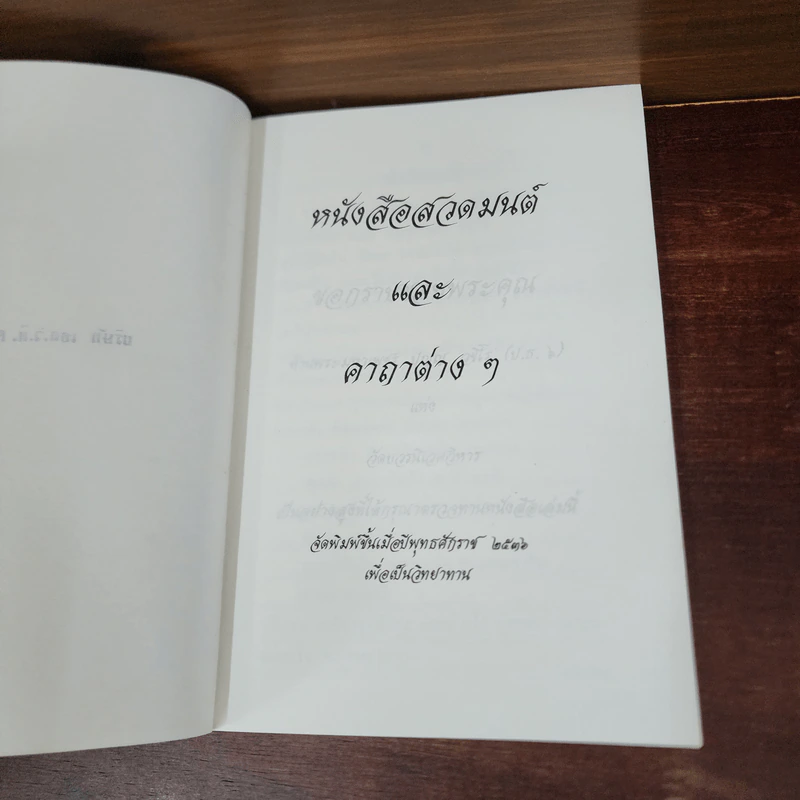 หนังสือสวดมนต์
และ
คาถาต่าง ๆ
จัดพิมพ์ขึ้นเมื่อปีพุทธศักราช ๒๕๓๖
เพื่อเป็นวิทยาทาน